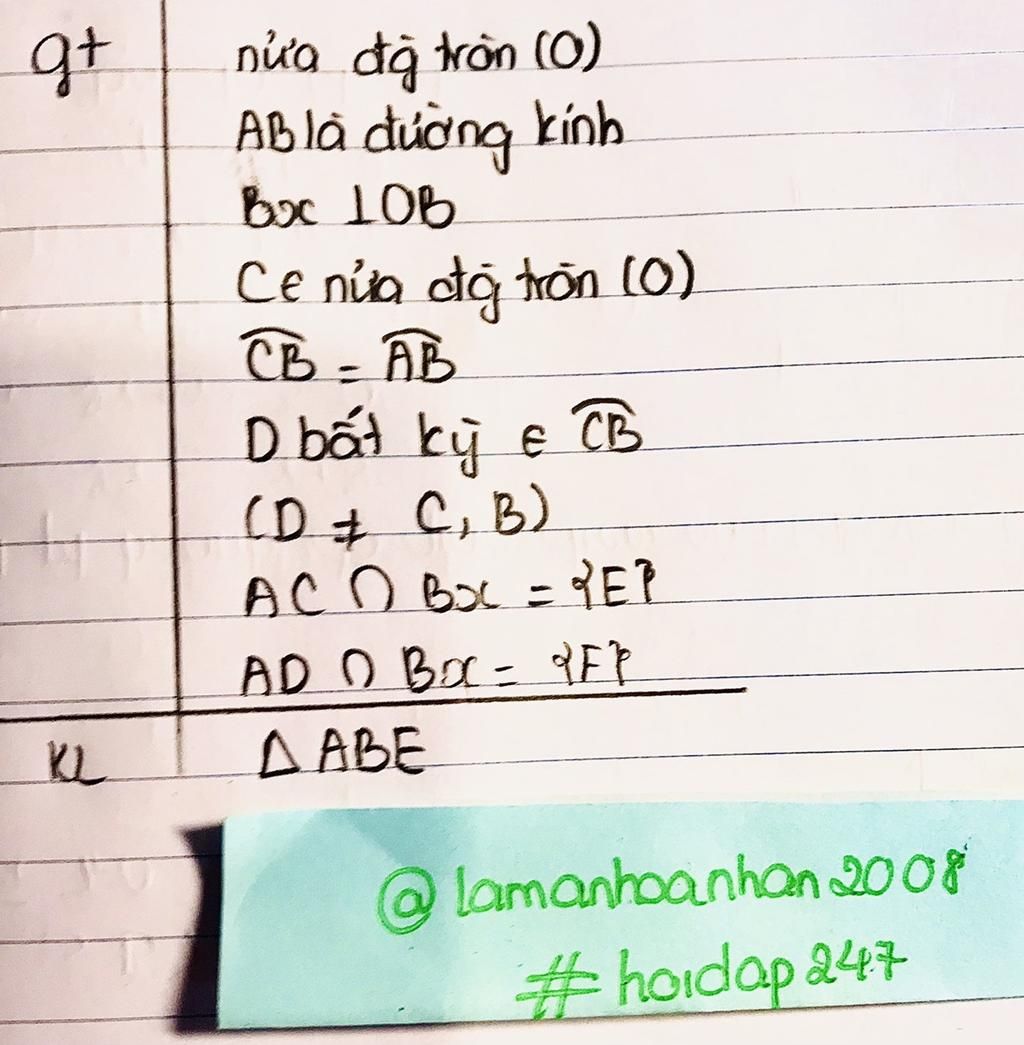 gt nửa đg tròn (O)
AB là đường kính
Bx ⊥ OB
C ∈ nửa đg tròn (O)
C͡B = A͡B
D bất kỳ ∈ C͡B
(D ≠ C, B)
AC ∩ Bx = {E}
AD ∩ Bx = {F}
KL Δ ABE
@ lamanhoanhan2008
# hoidap247